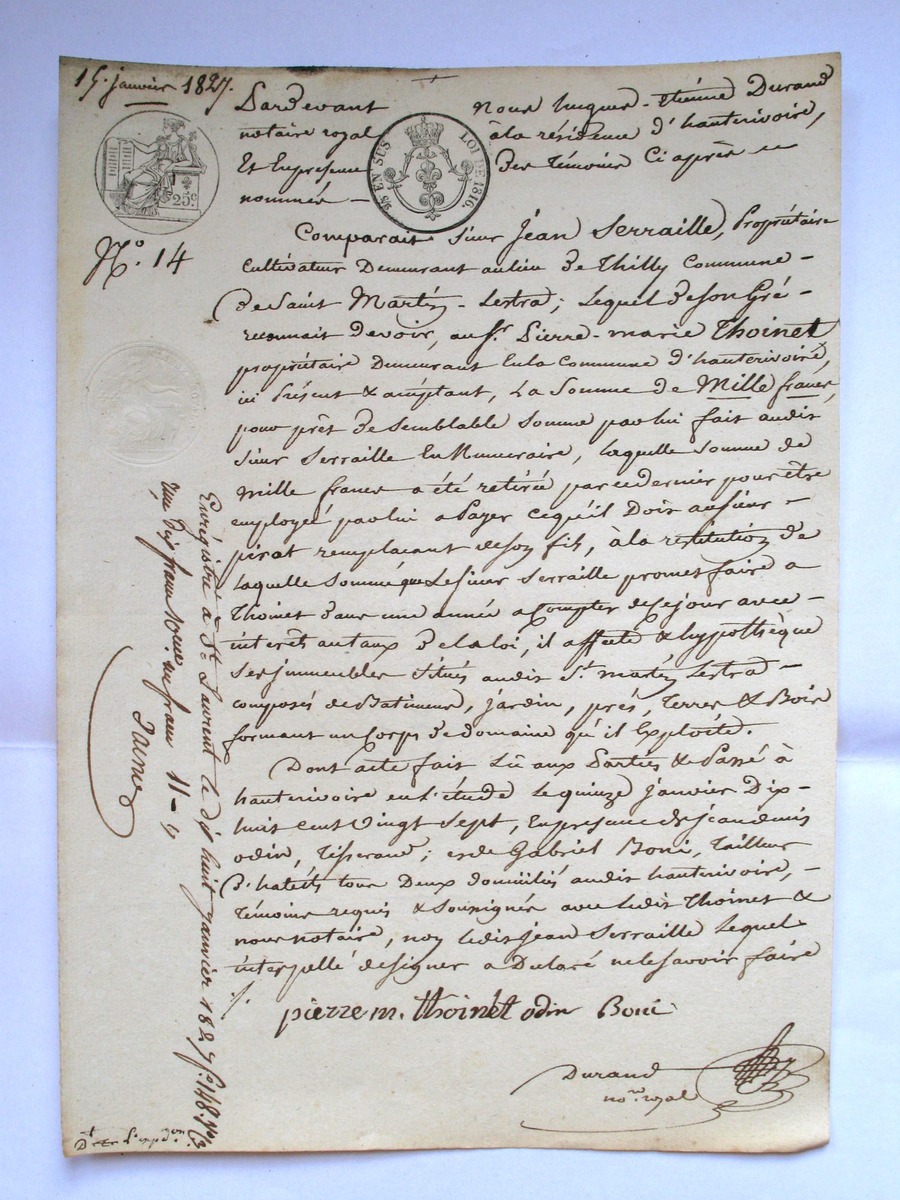 15. janvier 1827.
Pardevant nous hugues-Etienne Durand
notaire royal à la résidence d'hauterivoire,
Et En presence Des Témoins Ci après
nommés –
25c
EN SUS
LOI DE 1816.
N.o 14
Comparait Sieur Jéan Serraille, Propriétaire
Cultivateur Demeurant au lieu De Thilly Commune –
De Saint Martin-Lestra; Lequel De son Gré –
reconnait Devoir, au Sr. Pierre-marie Thoinet
propriétaire Demeurant En la Commune d'hauterivoire,
ici Présent & acceptant, La Somme de Mille francs,
pour prêt De Semblable Somme par lui fait audit
Sieur Serraille En Numeraire, Laquelle Somme de
Mille francs a été retirée par ce dernier pour être
Employée par lui a Payer ce qu'il Doit au Sieur –
pirat remplacant de son fils, à la restitution de
Laquelle Somme que Le Sieur Serraille promet faire a
Thoinet Dans une année a Compter de Ce jour avec –
interêt au taux De la loi, il affecte & hypothèque
Ses immeubles Situés audit St. martin Lestra –
composés de Batiments, Jardin, prés, Terres & Bois
formant un Corps De domaine qu'il Exploite.
Dont acte fait Lû aux Parties & Passé à
hauterivoire en l'étude Le quinze Janvier Dix-
huit cent Vingt Sept, En presence de jean denis
odin, Tisserand; et de Gabriel Boni, Tailleur
D'habits tous Deux domiciliés audit hauterivoire, –
Témoins requis & Soussignés avec ledit Thoinet &
nous notaire, non ledit Jean Serraille Lequel
interpellé de signer a Declaré ne le savoir faire
pierre m. thoinet odin Boni
Durand
nore. royal
Enregistré à St. Laurent le dix huit janvier 1827 fo. 148
reçu dix francs 10me un franc 11 –